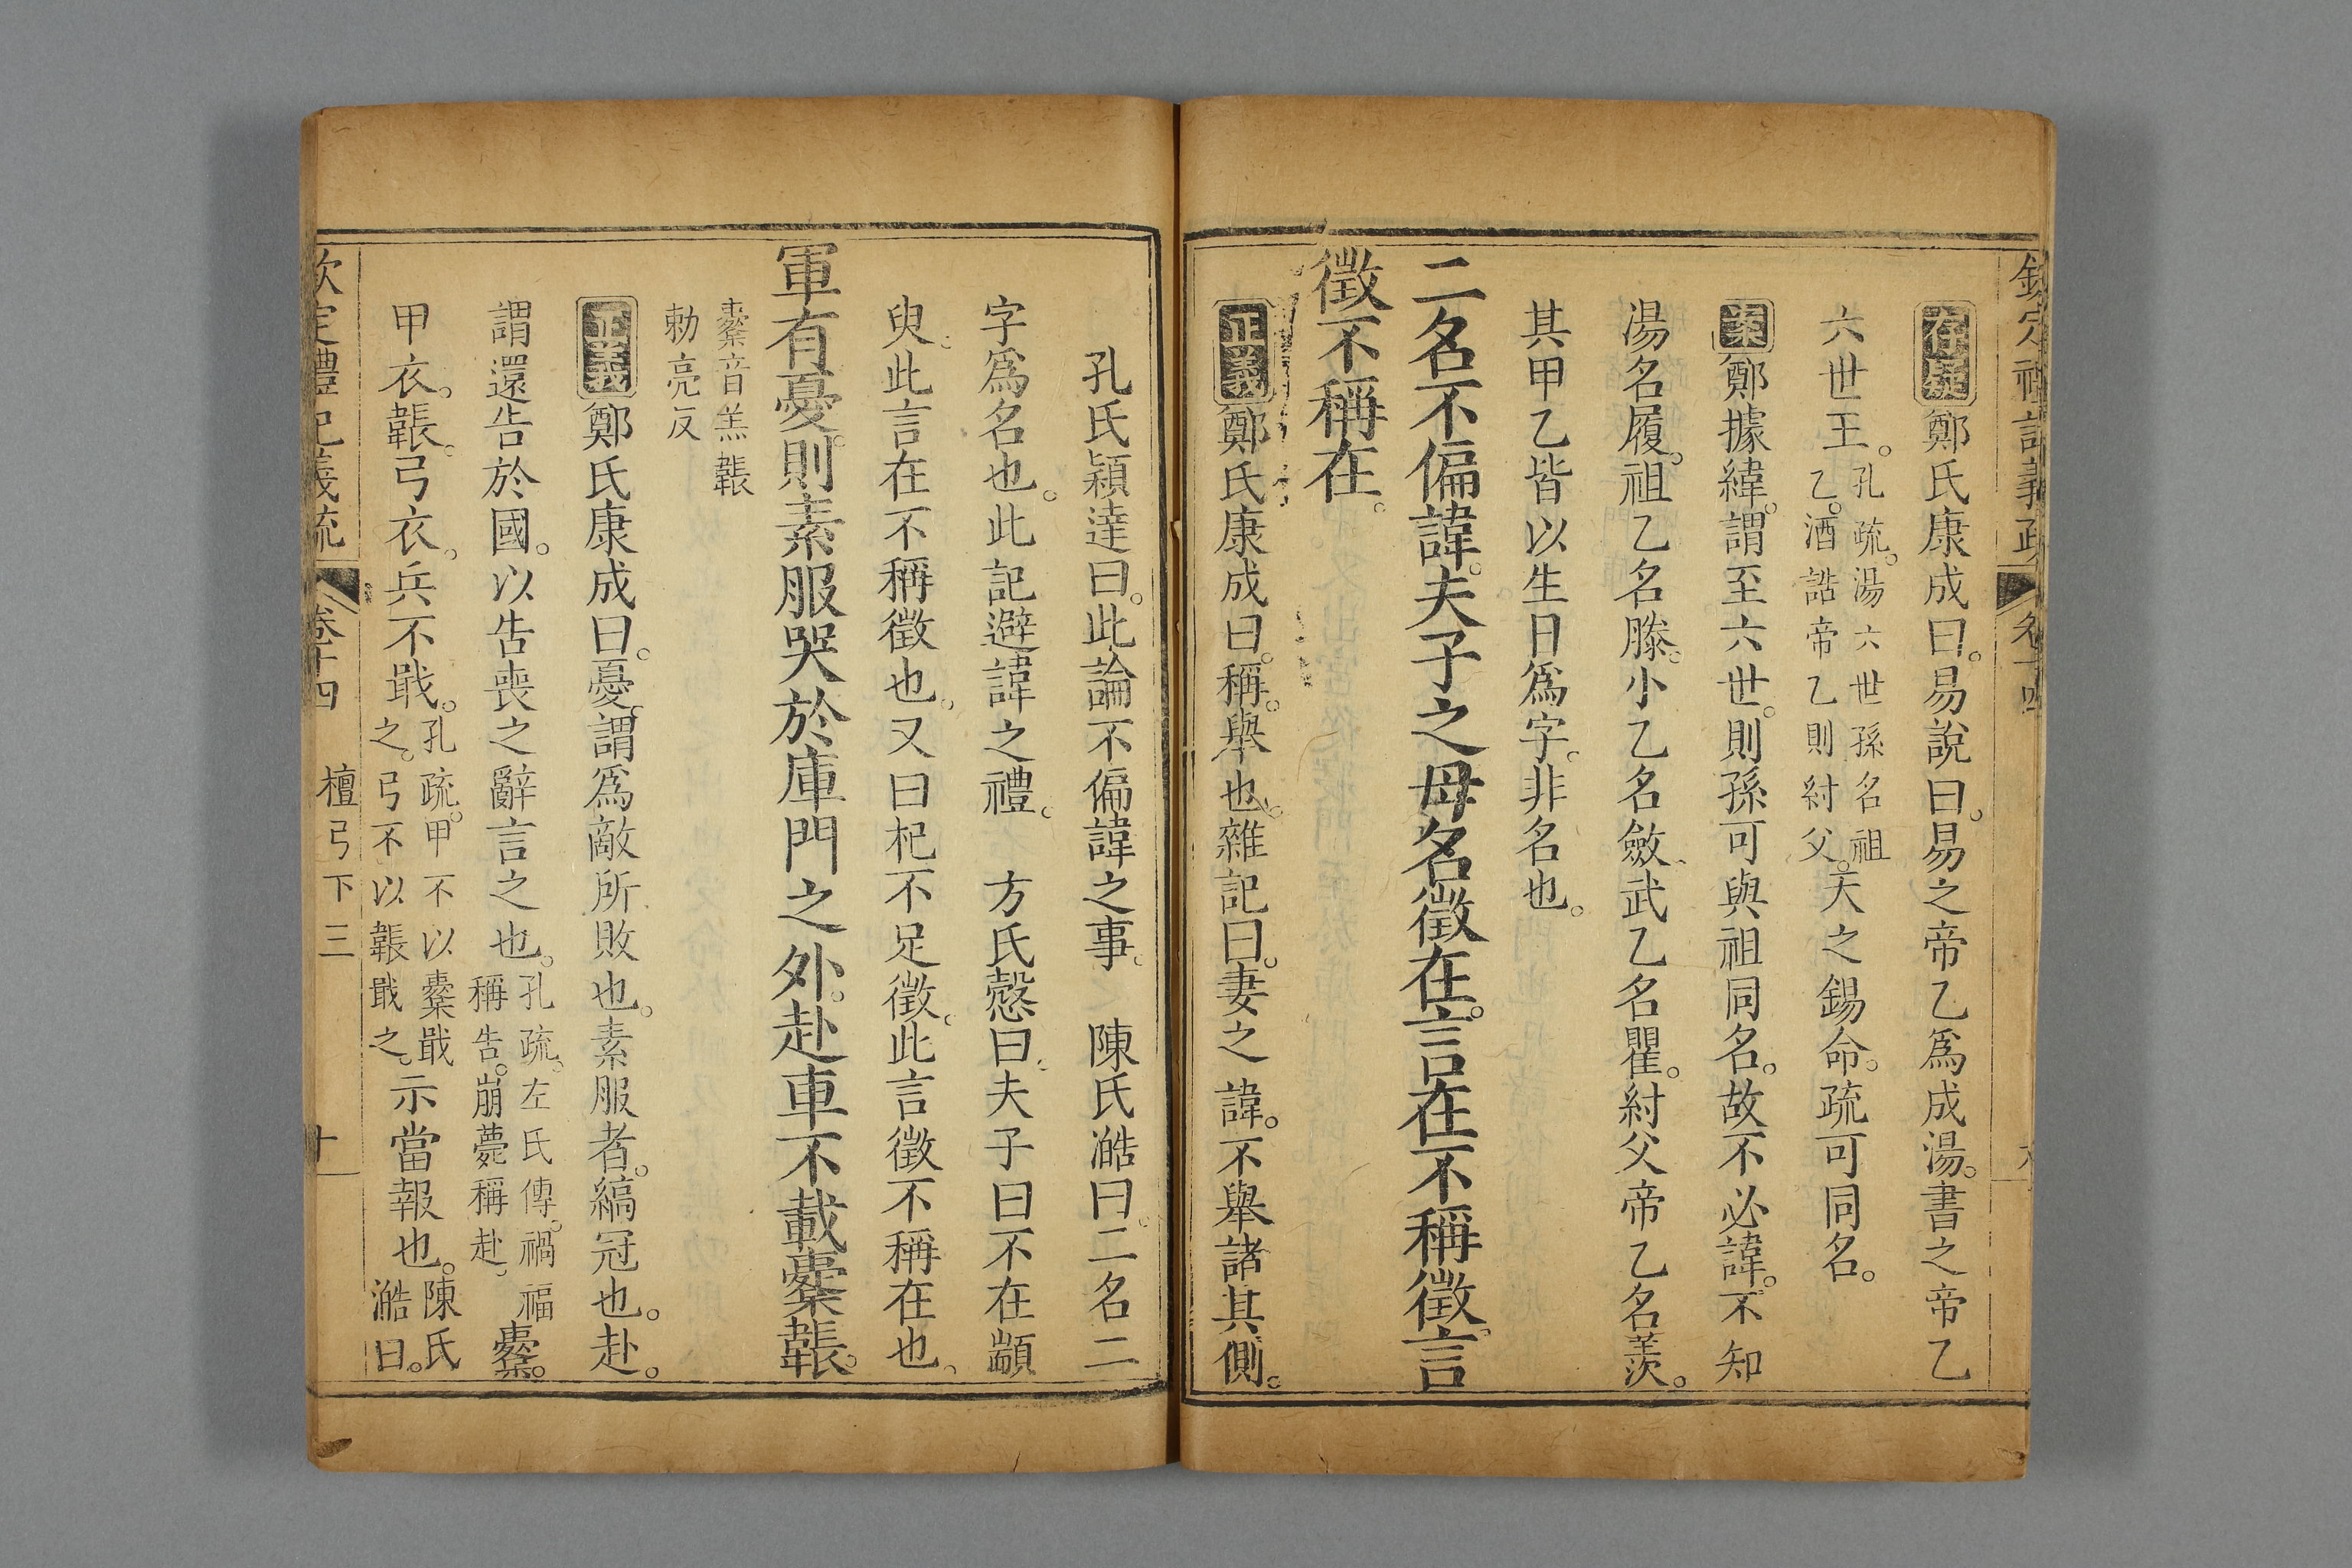 欽定禮記義疏 卷十四
存疑鄭氏康成曰。易說曰。易之帝乙爲成湯。書之帝乙
六世王。孔疏。湯六世孫名祖乙。酒誥帝乙則紂父。天之錫命。疏可同名。
案鄭據緯。謂至六世。則孫可與祖同名。故不必諱。不知
湯名履。祖乙名滕。小乙名斂、武乙名瞿。紂父帝乙名羨。
其甲乙皆以生日爲字。非名也。
二名不偏諱。夫子之母名徵在。言在不稱徵。言
徵不稱在。
正義鄭氏康成曰。稱。舉也。雜記曰。妻之諱。不舉諸其側。
孔氏穎達曰。此論不偏諱之事。 陳氏澔曰。二名二
字爲名也。此記避諱之禮。 方氏慤曰。夫子曰不在顓
臾。此言在不稱徵也。又曰杞不足徵。此言徵不稱在也。
軍有憂。則素服哭於庫門之外。赴車不載櫜韔。
櫜音羔韔
勅亮反
正義鄭氏康成曰。憂。謂爲敵所敗也。素服者。縞冠也。赴。
謂還告於國。以告喪之辭言之也。孔疏。左氏傳。禍福稱告。崩薨稱赴。櫜。
甲衣。韔。弓衣。兵不戢。孔疏。甲不以櫜戢之。弓不以韔戢之。示當報也。陳氏澔曰。
欽定禮記義疏 卷十四 檀弓下三 十